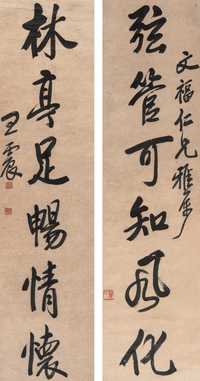 弦管可知风化
文福仁兄雅属
林亭足暢情懷
王震